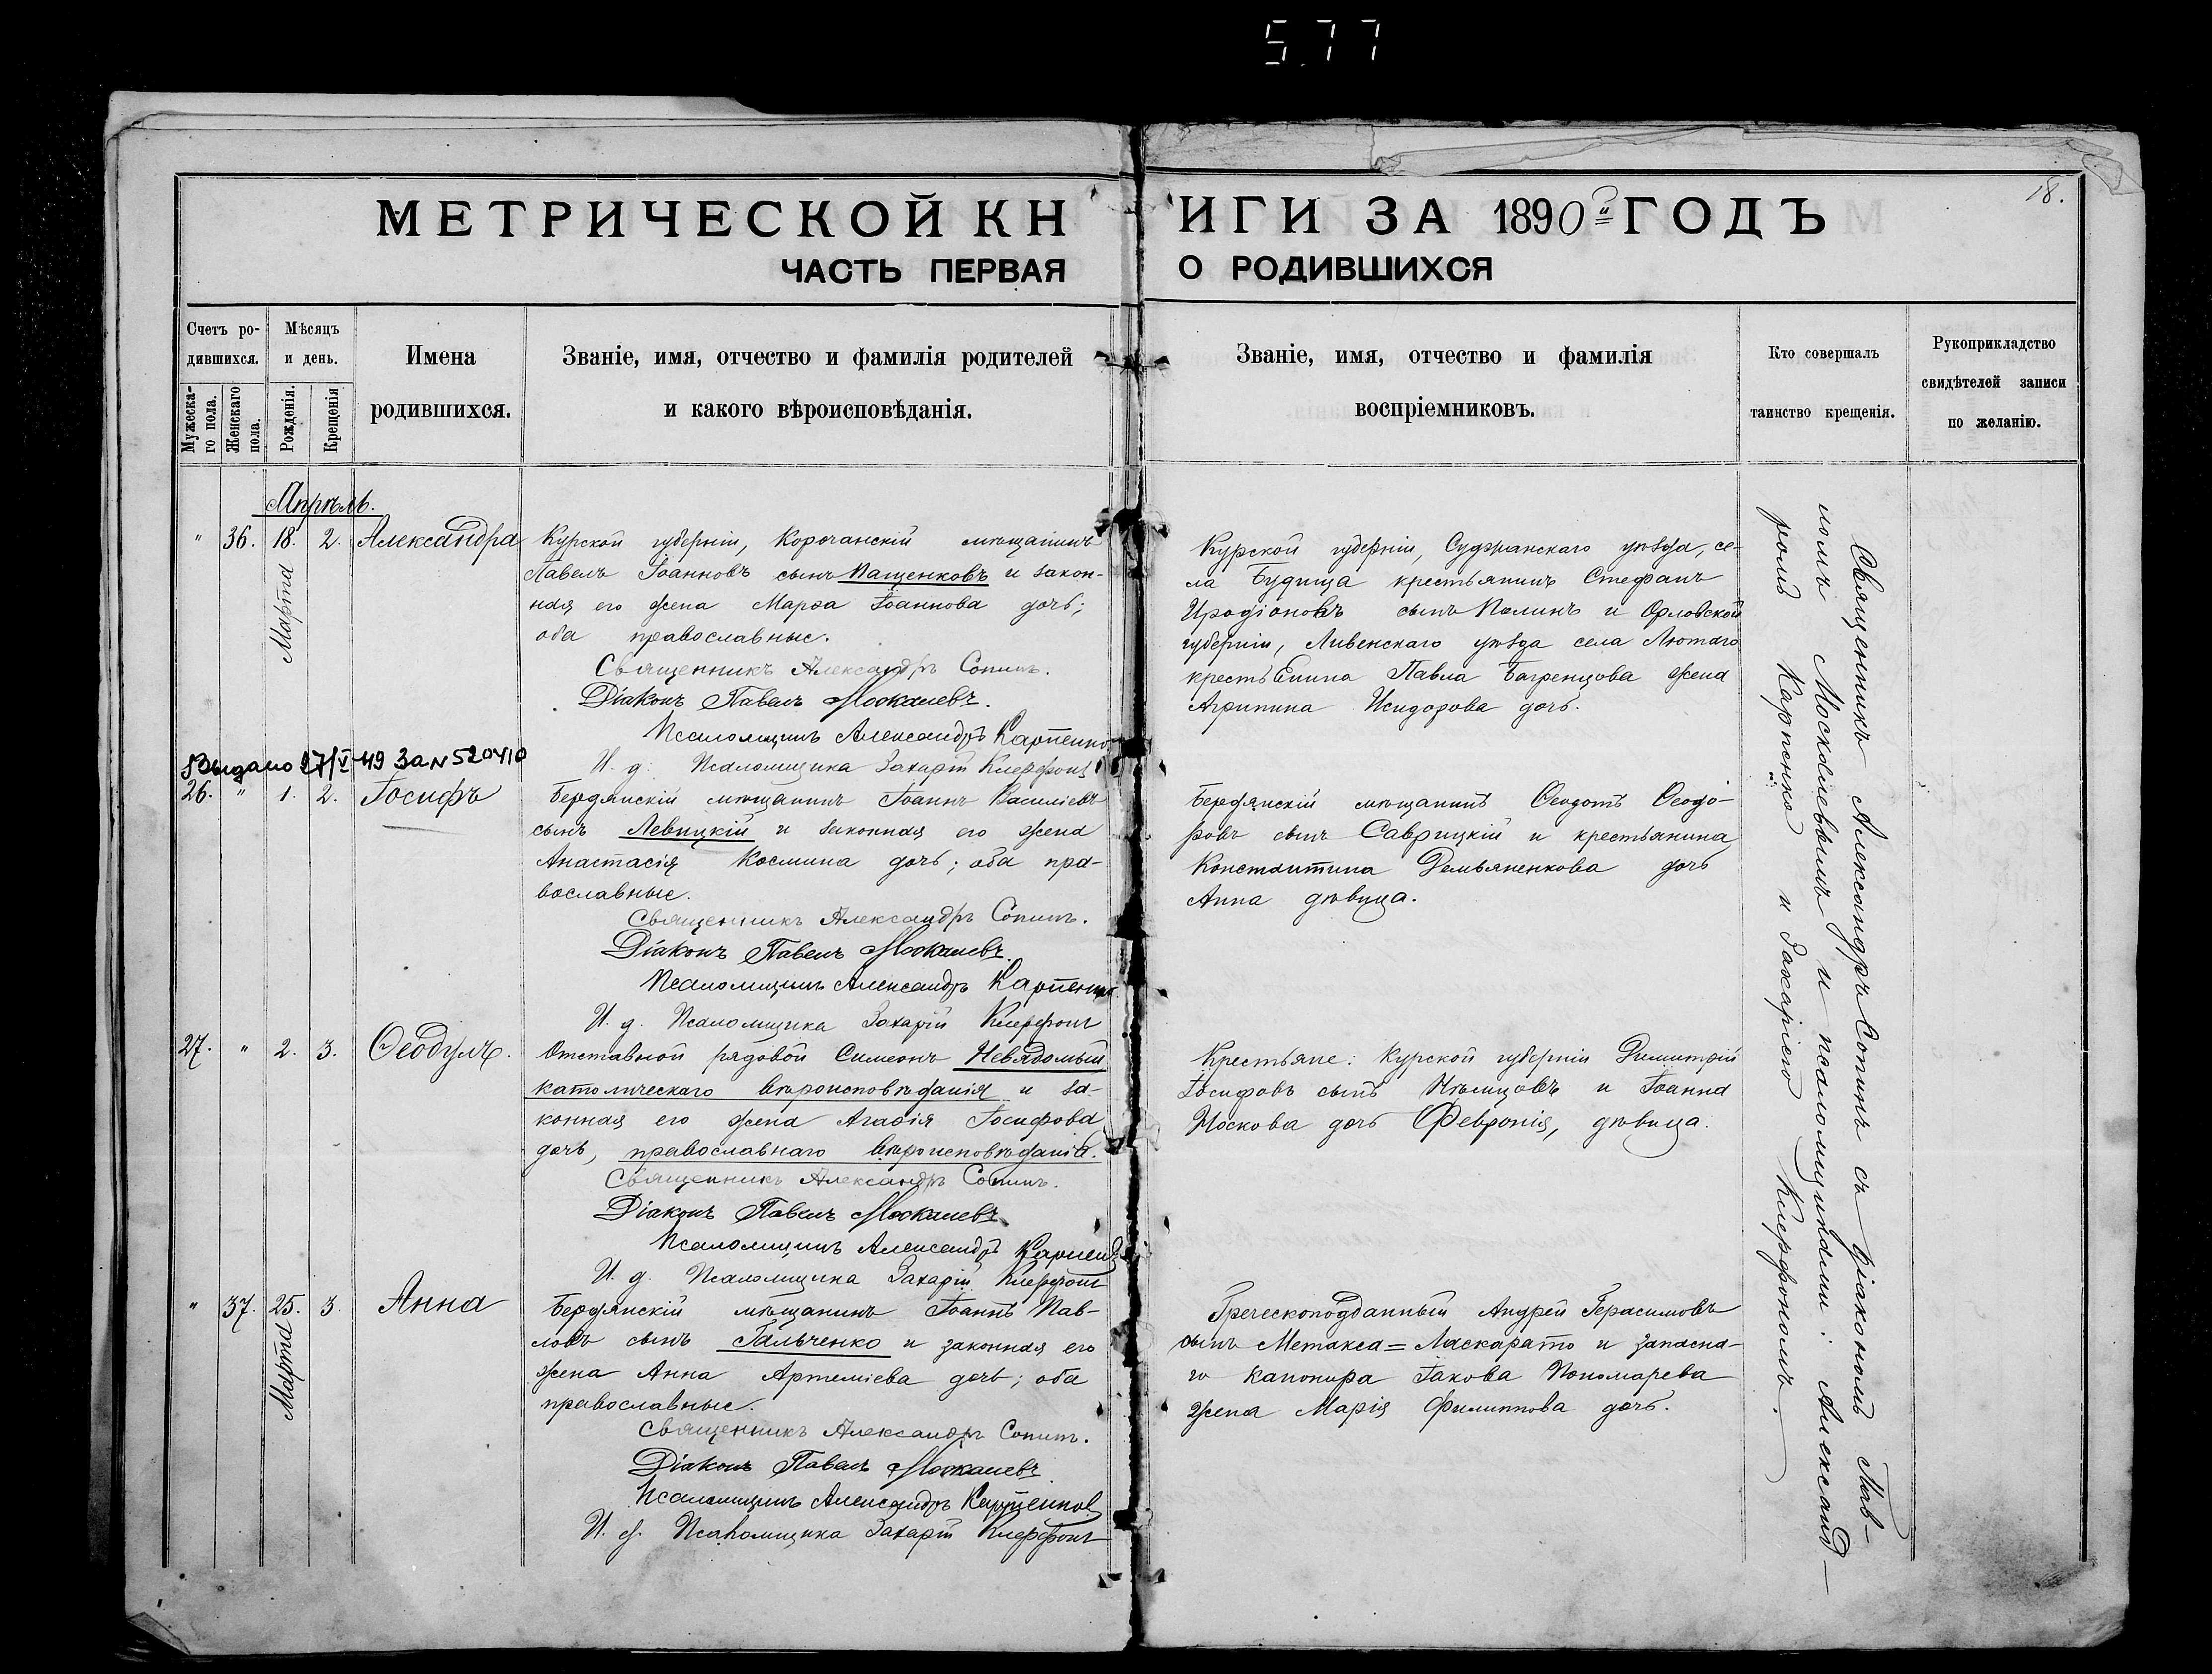 577
18.
МЕТРИЧЕСКОЙ КНИГИ ЗА 1890й ГОДЪ
ЧАСТЬ ПЕРВАЯ О РОДИВШИХСЯ
Счетъ ро-
дившихся.
Мужеска-
го пола.
Женскаго
пола.
Мѣсяцъ
и день.
Рожденія.
Крещенія
Имена
родившихся.
Званіе, имя, отчество и фамилія родителей
и какого вѣроисповѣданія.
Званіе, имя, отчество и фамилія
воспріемниковъ.
Кто совершалъ
таинство крещенія.
Рукоприкладство
свидѣтелей записи
по желанію.
Апрѣль.
" 36. 18. 2. Александра
Марта
Курской губерніи, Корочанскій мѣщанинъ
Павелъ Іоанновъ сынъ Пащенковъ и закон-
ная его жена Марѳа Іоаннова дочь;
оба православные.
Священникъ Александръ Сопинъ.
Діаконъ Павелъ Москалевъ.
Псаломщикъ Александръ Карпенко
И. д. Псаломщика Захарій Клерфонъ
Курской губерніи, Суджанскаго уѣзда, се-
ла Будища крестьянинъ Стефанъ
Иродіоновъ сынъ Палинъ и Орловской
губерніи, Ливенскаго уѣзда села Лютаго
крестьянина Павла Багренцова жена
Агрипина Исидорова дочь.
Выдано 27/V-49 За N 520410
26. " 1. 2. Іосифъ
Бердянскій мѣщанинъ Іоаннъ Василіевъ
сынъ Левицкій и законная его жена
Анастасія Космина дочь; оба пра-
вославные.
Священникъ Александръ Сопинъ.
Діаконъ Павелъ Москалевъ.
Псаломщикъ Александръ Карпенко.
И. д. Псаломщика Захарій Клерфонъ
Бердянскій мѣщанинъ Ѳеодотъ Ѳеодо-
ровъ сынъ Саврицкій и крестьянина
Константина Демьяненкова дочь
Анна дѣвица.
27. " 2. 3. Ѳеодулъ.
Отставной рядовой Симеонъ Невядомый
католическаго вѣроисповѣданія и за-
конная его жена Агаѳія Іосифова
дочь, православнаго вѣроисповѣданія.
Священникъ Александръ Сопинъ.
Діаконъ Павелъ Москалевъ
Псаломщикъ Александръ Карпенко
И. д. Псаломщика Захарій Клерфонъ
Крестьяне: Курской губерніи Димитрій
Іосифовъ сынъ Нѣмцовъ и Іоанна
Носкова дочь Февронія, дѣвица.
" 37. 25. 3. Анна
Марта
Бердянскій мѣщанинъ Іоаннъ Пав-
ловъ сынъ Гальченко и законная его
жена Анна Артеміева дочь; оба
православные.
Священникъ Александръ Сопинъ.
Діаконъ Павелъ Москалевъ
Псаломщикъ Александръ Карпенко
И. д. Псаломщика Захарій Клерфонъ
Греческоподданный Андрей Герасимовъ
сынъ Метакса=Ласкарато и запасна-
го канонира Іакова Пономарева
жена Марія Филиппова дочь.
Священникъ Александръ Сопинъ съ діакономъ Пав-
ломъ Москалевымъ и псаломщиками: Александ-
ромъ Карпенко и Захаріею Клерфономъ.